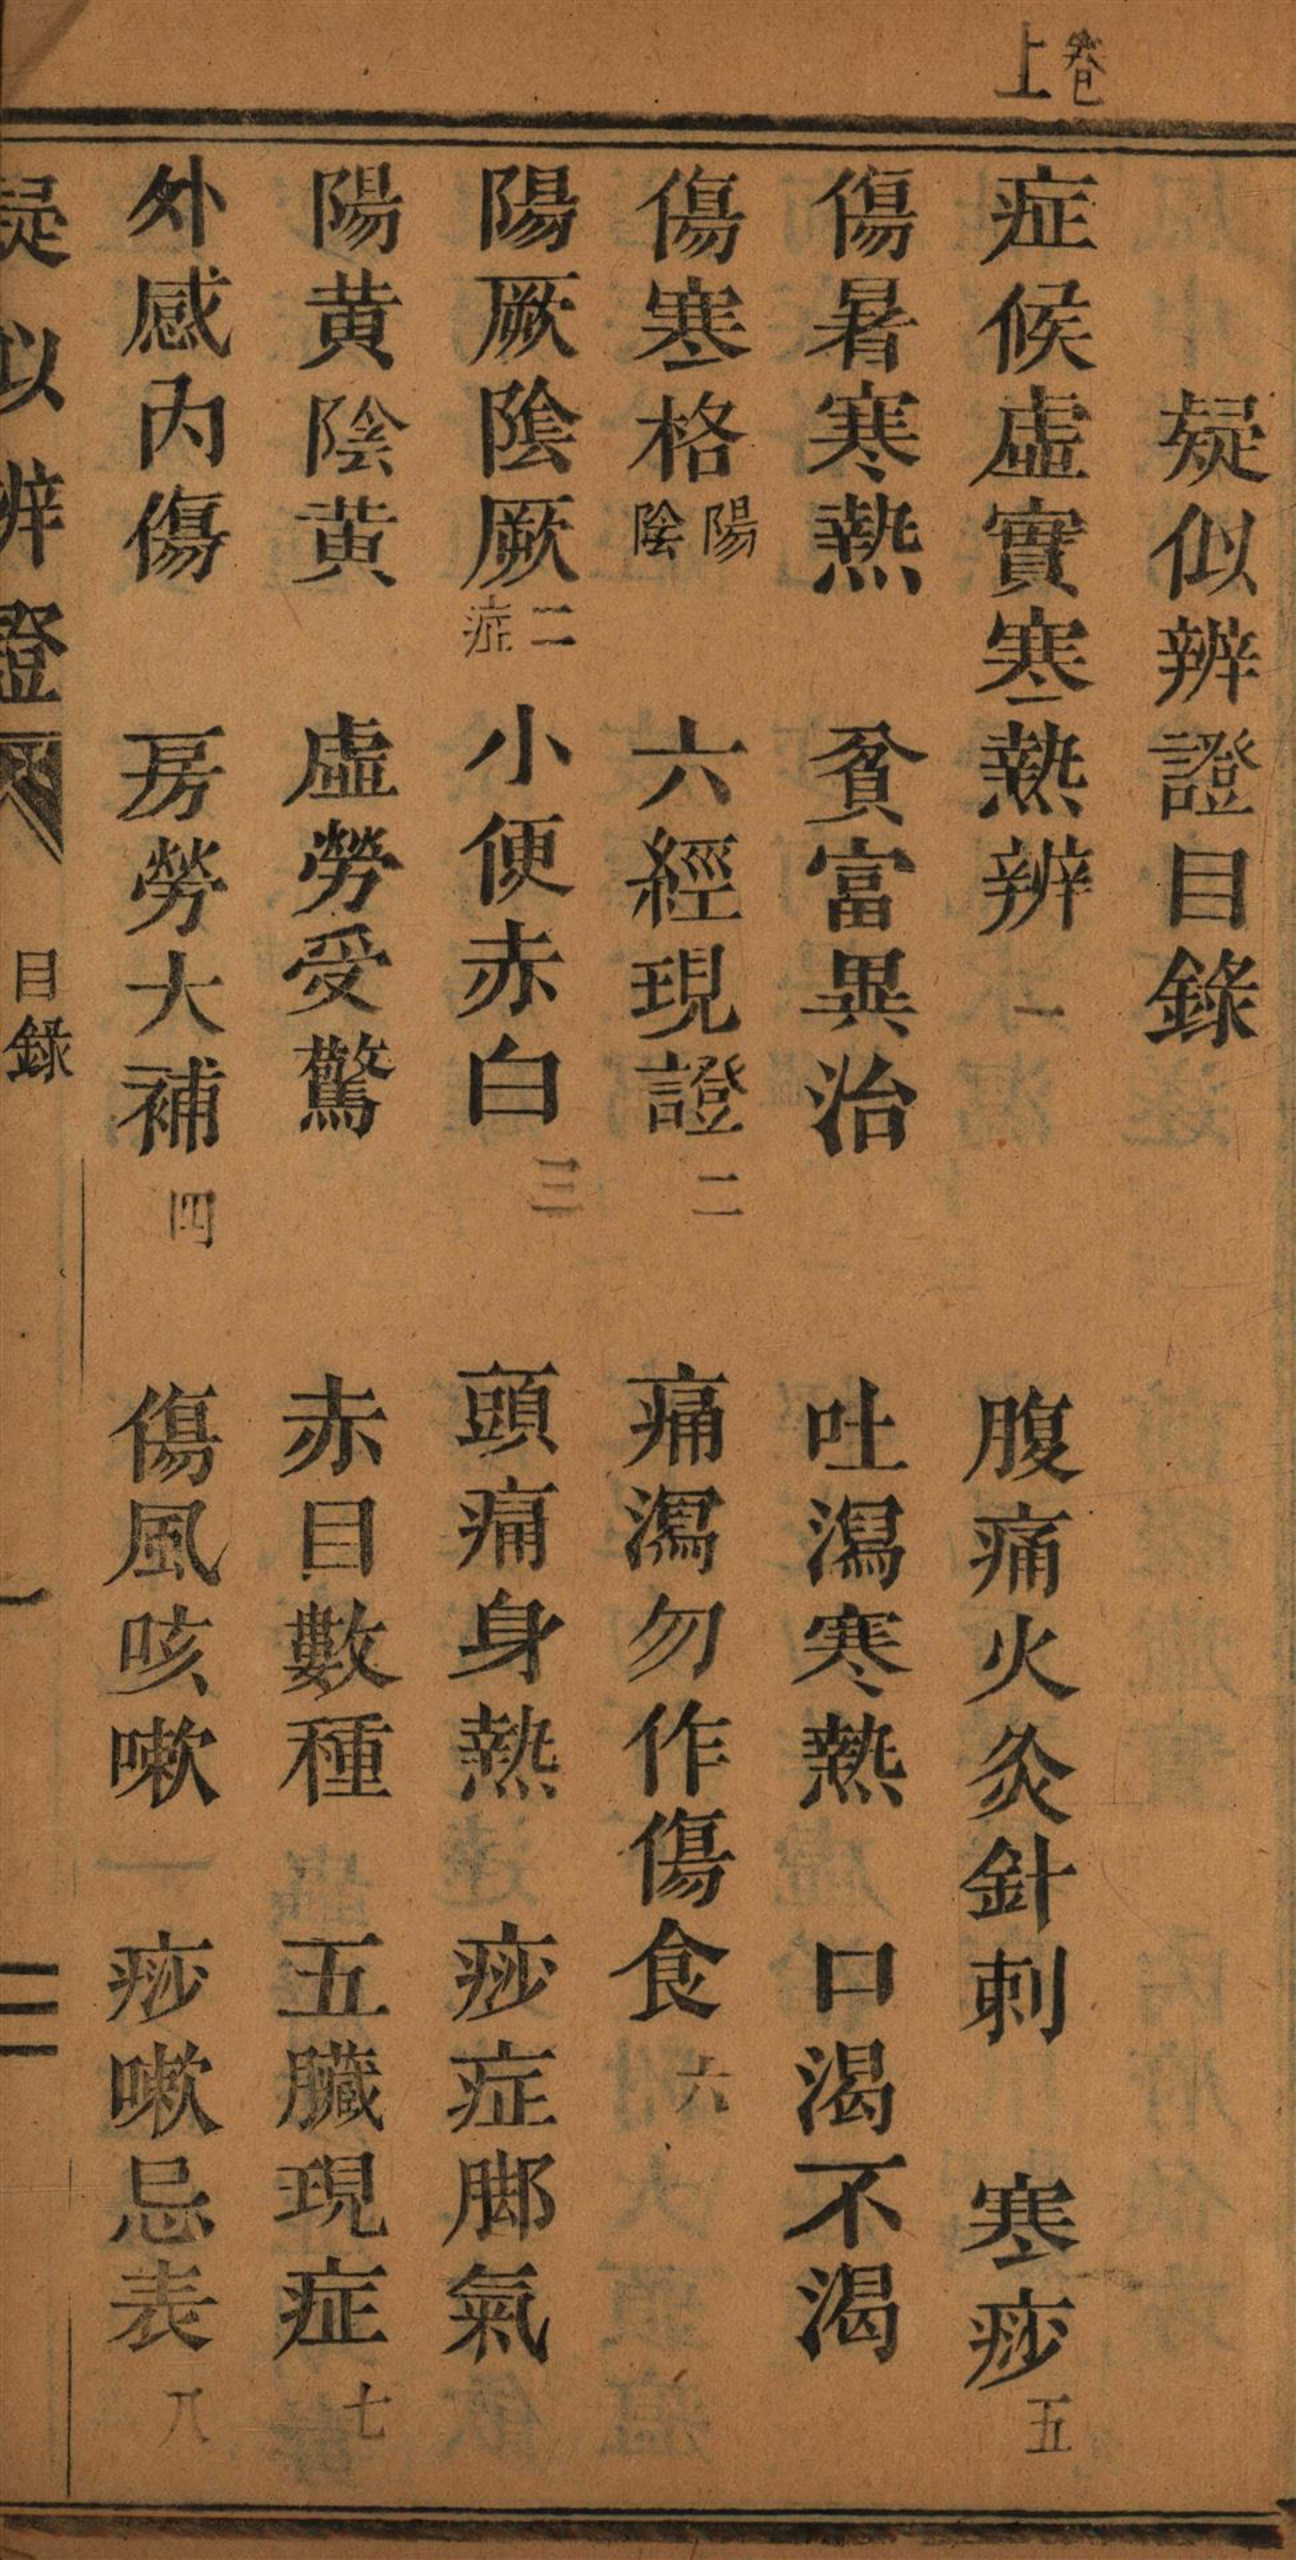 卷上
疑似辨證目錄
症候虛實寒熱辨 一 腹痛火灸針刺 寒痧 五
傷暑寒熱 貧富異治 吐瀉寒熱 口渴不渴
傷寒格陽陰 六經現證 二 痛瀉勿作傷食 六
陽厥陰厥二症 小便赤白 三 頭痛身熱 痧症脚氣
陽黃陰黃 虛勞受驚 赤目數種 五臟現症 七
外感內傷 房勞大補 四 傷風咳嗽 痧嗽忌表 八
疑以辨證 目錄 一